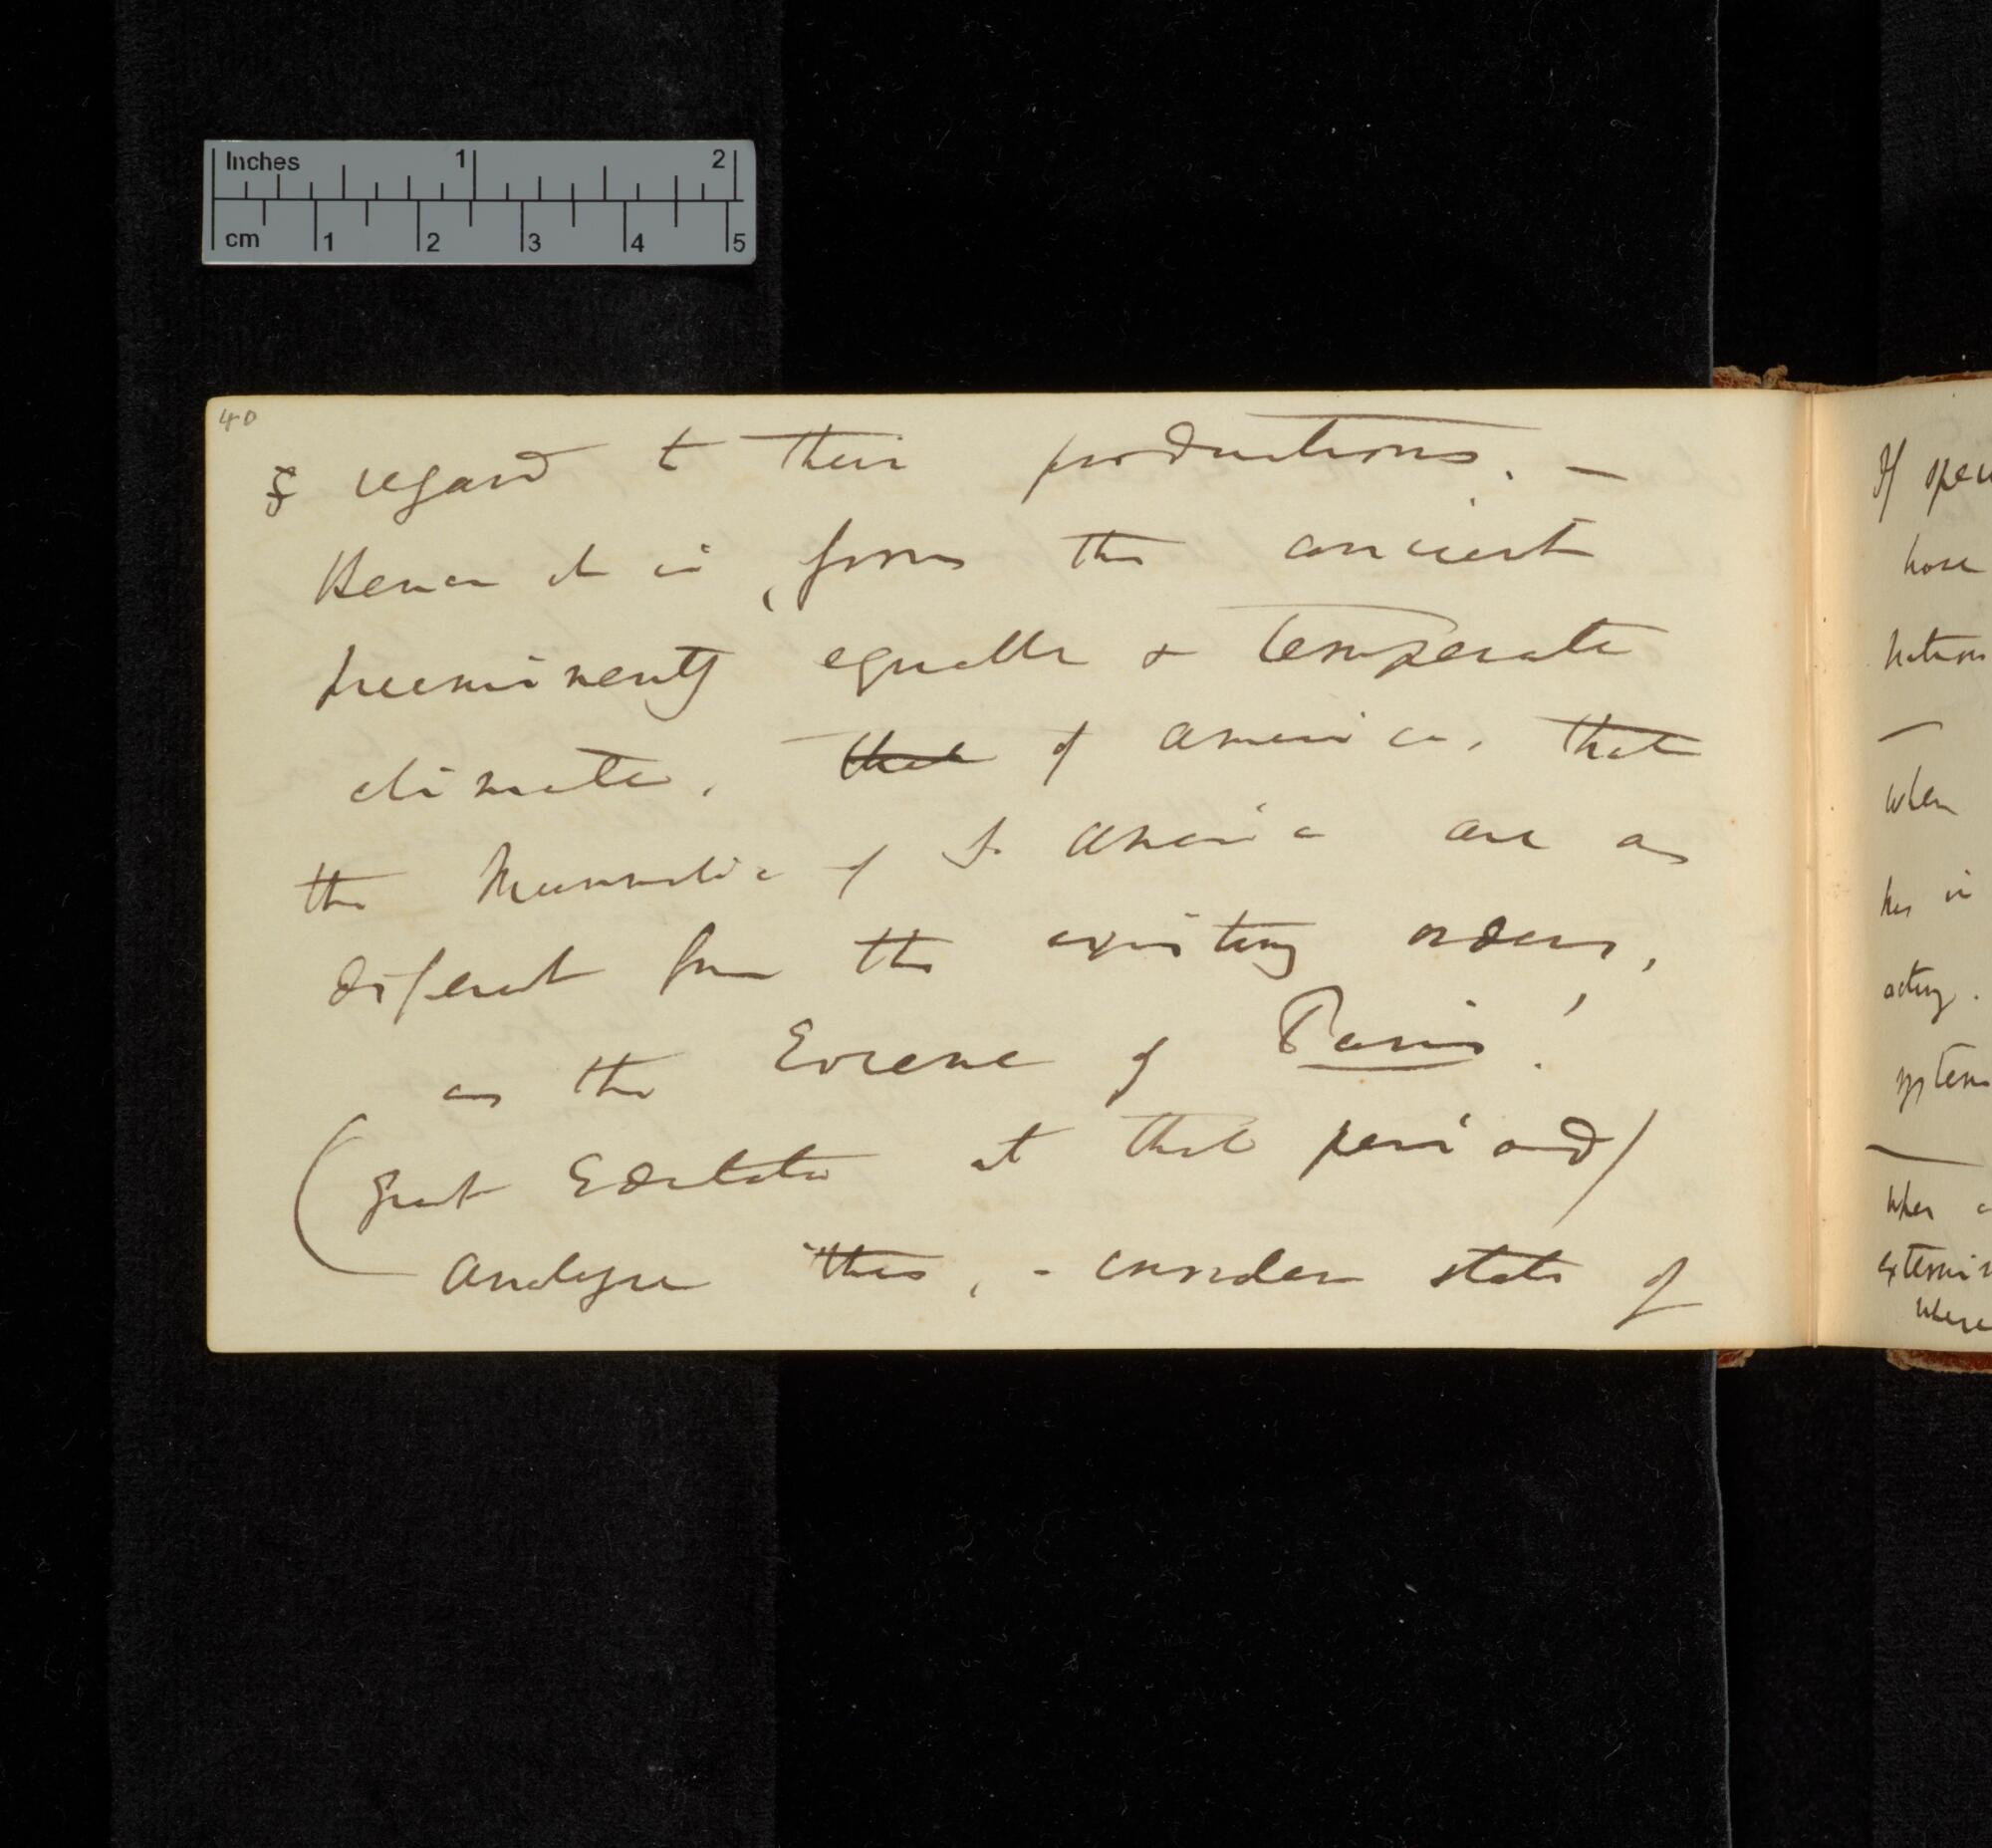 Inches 1 2
cm 1 2 3 4 5
40
regard to their productions. —
Hence it is, from the ancient
preeminently equable & temperate
climate, that of America, that
the Mammalia of S. America are as
different from the existing orders,
as the Eocene of Paris!
(great Edentata at that period)
Analyse this, - consider state of
If
when
his in
acting.
when
where